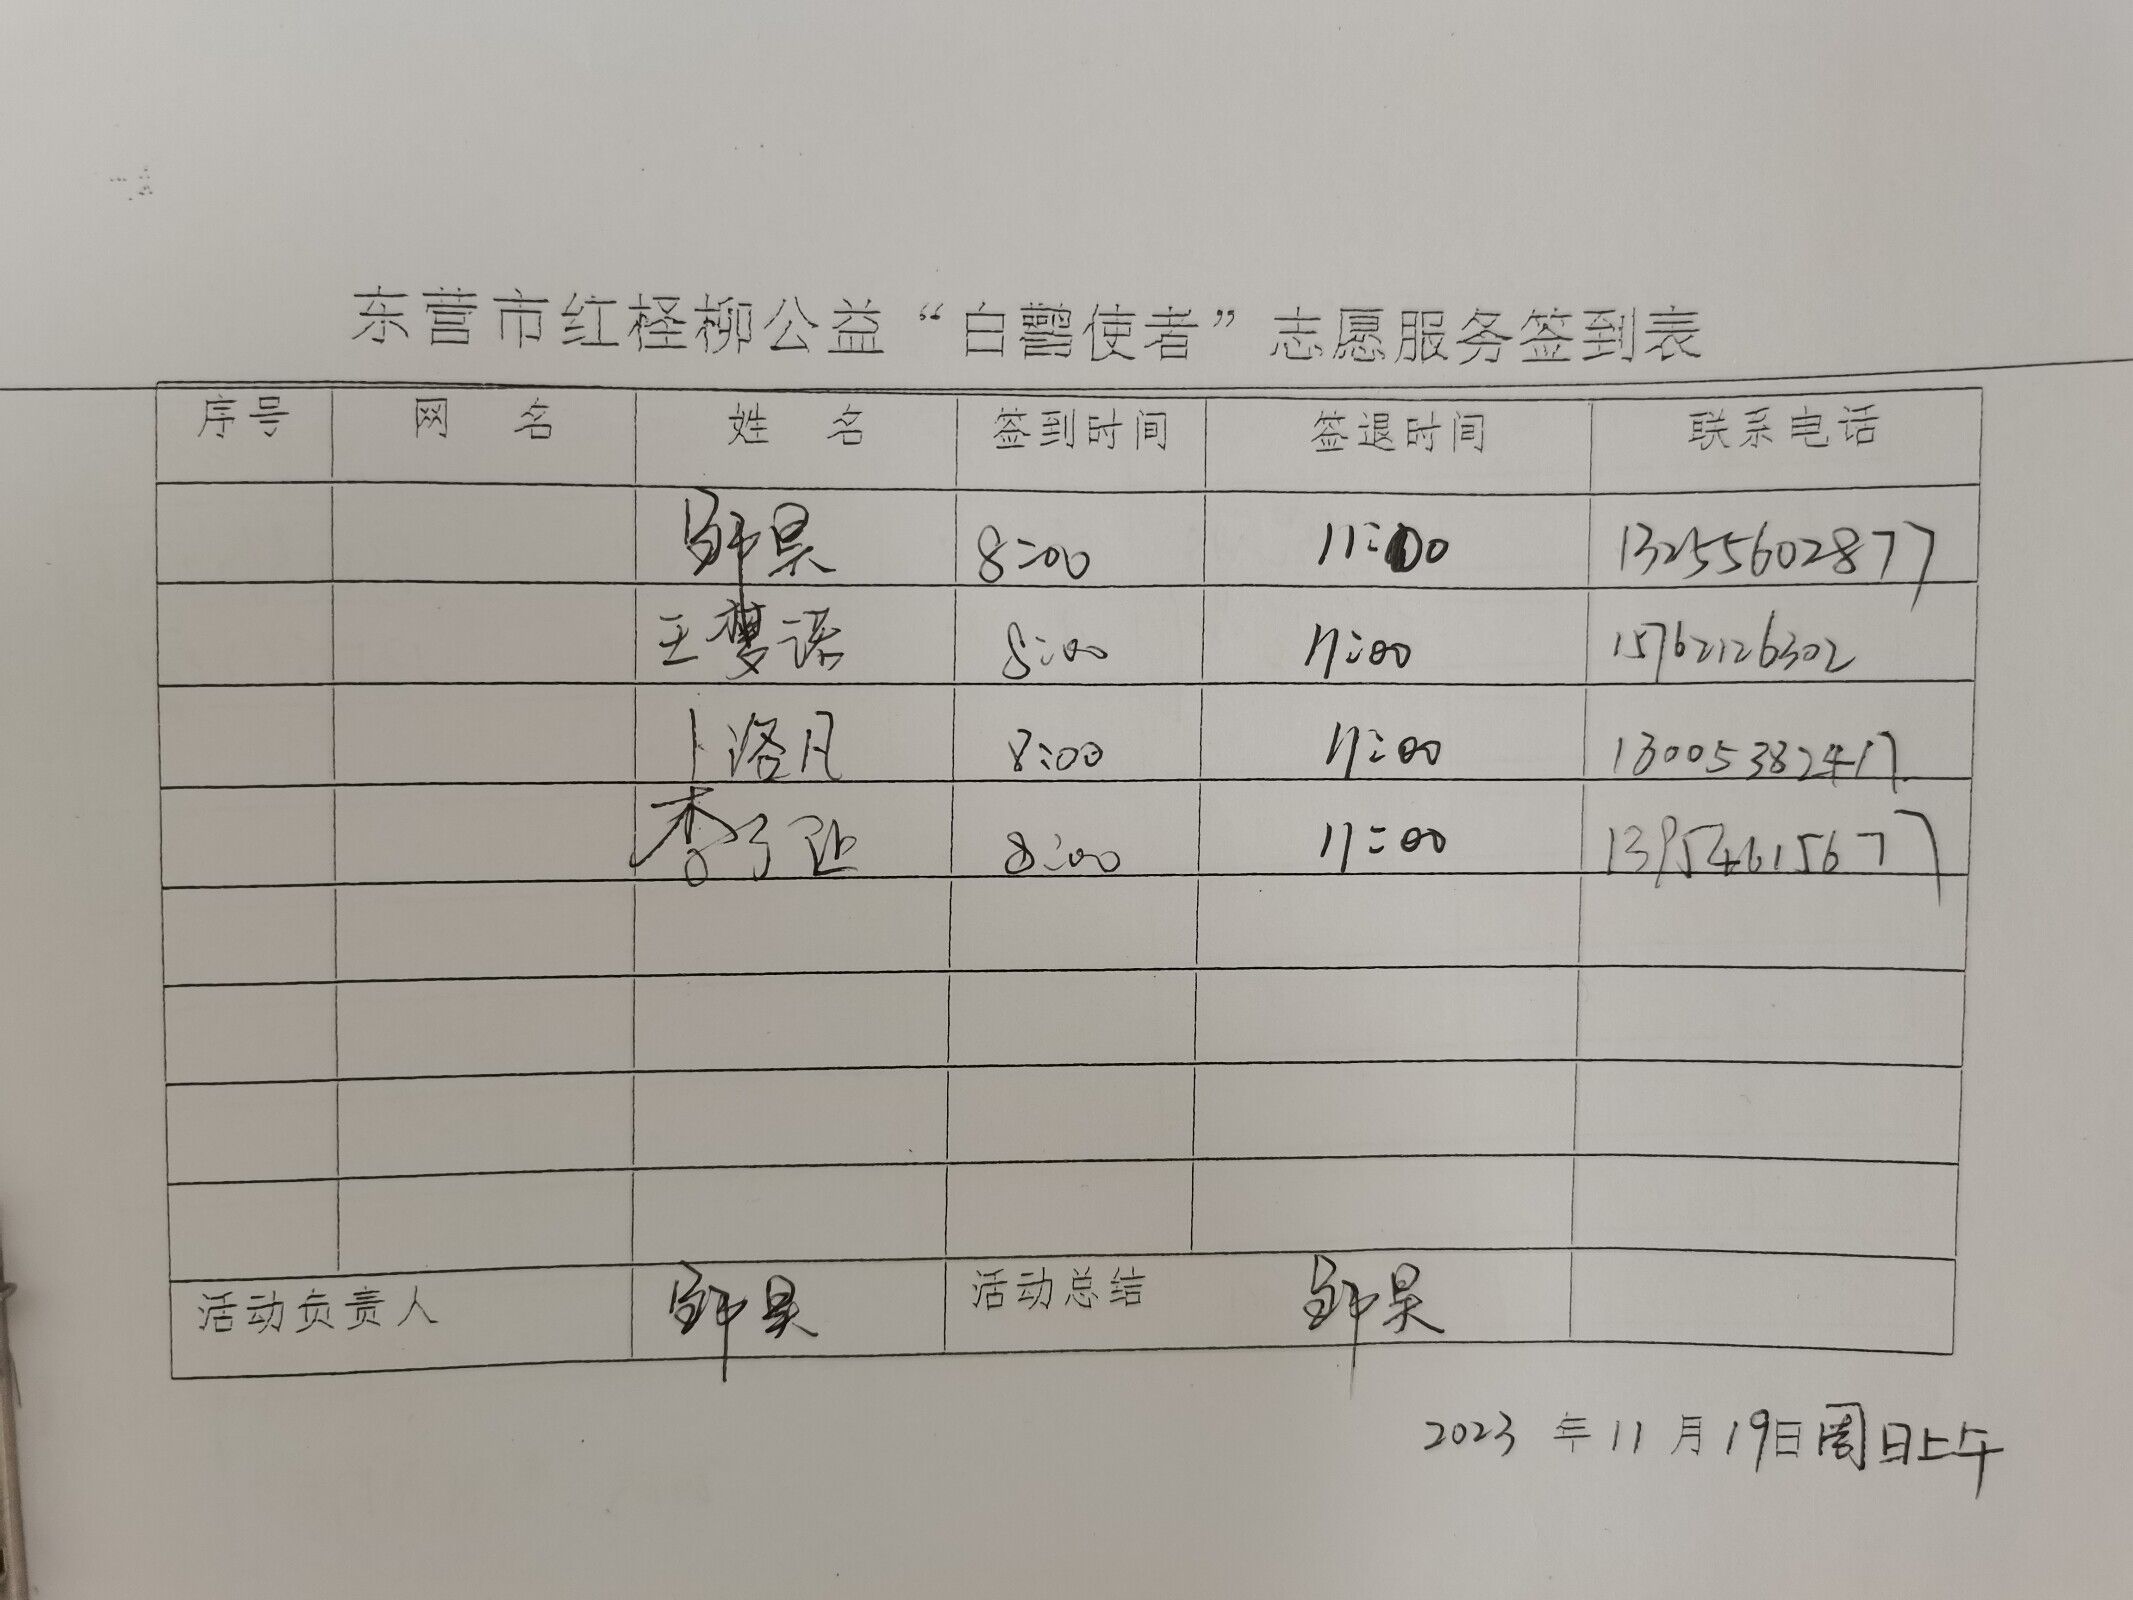 东营市红柽柳公益“白鹳使者”志愿服务签到表
序号 网 名 姓 名 签到时间 签退时间 联系电话
昊 8:00 11:00 13255602877
王梦语 8:00 11:00 15762126302
卜洛凡 8:00 11:00 13005382417
李 8:00 11:00 13954615677
活动负责人 昊 活动总结 昊
2023 年 11 月 19日周日上午